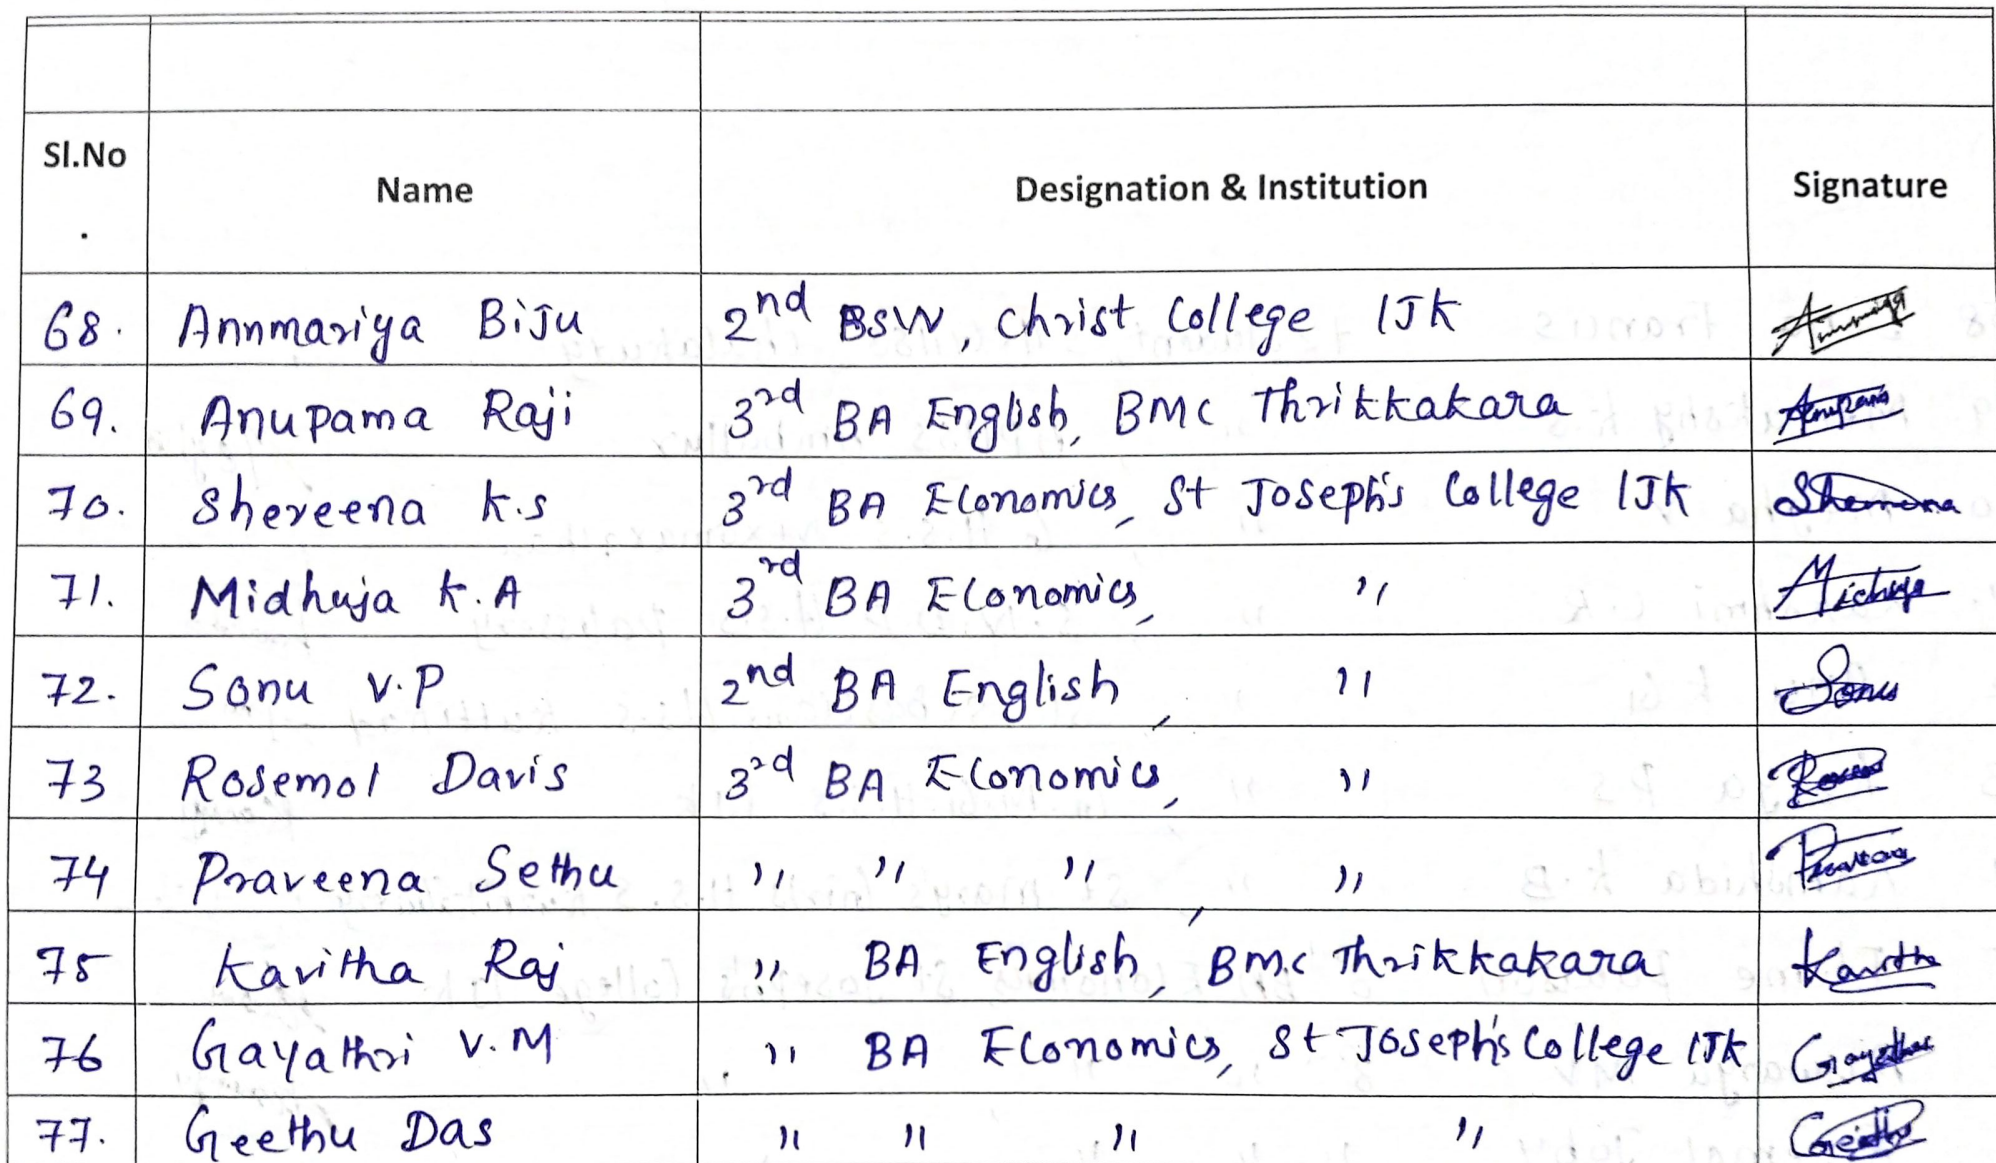 Sl.No. Name Designation & Institution Signature
68. Annmariya Biju 2nd BSW, Christ College IJK
69. Anupama Raji 3rd BA English, BMC Thrikkakara Anupama
70. Shereena K.S 3rd BA Economics, St Joseph's College IJK Shereena
71. Midhuja K.A 3rd BA Economics, " Midhuja
72. Sonu V.P 2nd BA English, " Sonu
73 Rosemol Davis 3rd BA Economics, "
74 Praveena Sethu " " " , "
75 Kavitha Raj " BA English, BMC Thrikkakara Kavitha
76 Gayathri V.M " BA Economics, St Joseph's College IJK Gayathri
77. Geethu Das " " " " Geethu